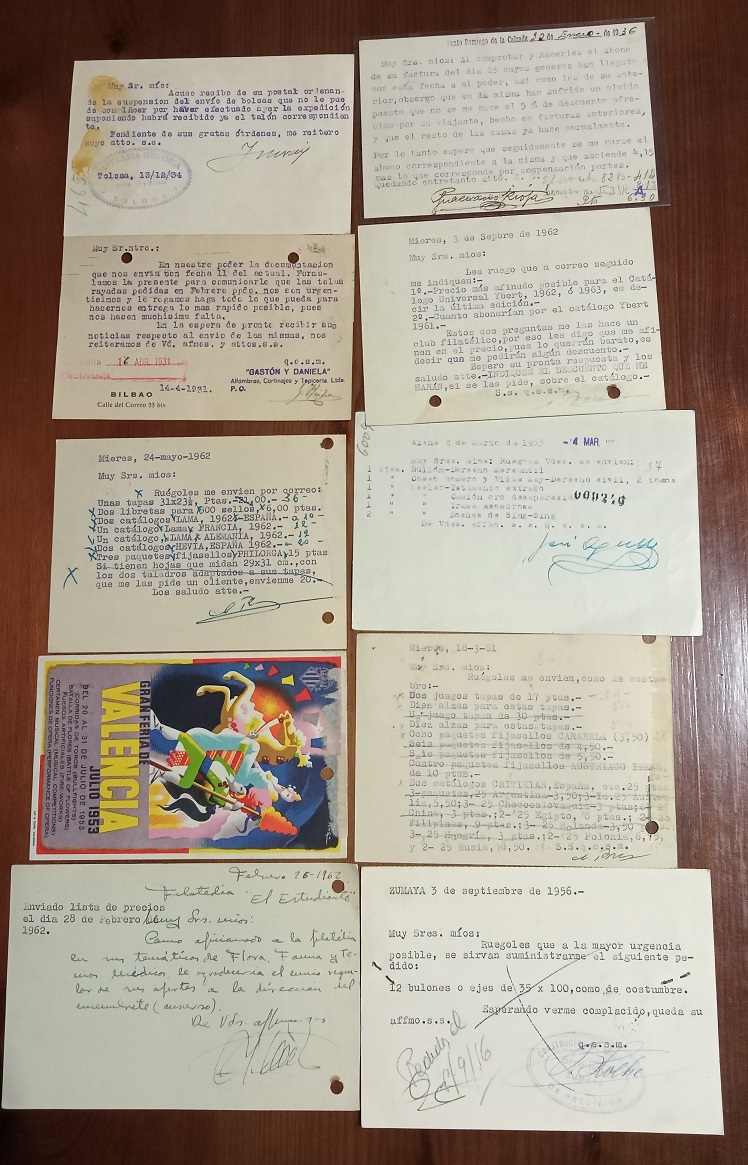 Muy Sr. mío:
Acuso recibo de su postal ordenan-
do la suspension del envío de bolsas que no le pue-
do complacer por haver efectuado ayer la expedición
suponiendo habrá recibido ya el talón correspondien-
te.
Pendiente de sus gratas órdenes, me reitero
suyo atto. s.s.
Tolosa, 13/12/34
TOLOSA
Santo Domingo de la Calzada 22 de Enero de 1936
Muy Sres. mios: Al comprobar y hacerles el abono
de su factura del dia 23 cuyos generos han llegado
con esta fecha a mi poder, asi como los de su ante-
rior, observo que en la misma han sufrido un olvido
puesto que no se me hace el 5 % de descuento ofre-
cido por su viajante, hecho en facturas anteriores,
y que el resto de las casas ya hace normalmente.
Por lo tanto espero que seguidamente se me curse el
abono correspondiente a la misma y que asciende 4,15
mas la que corresponde por compensación portes.
Quedando entretanto atto.
Muy Sr.ntro.:
En nuestro poder la documentacion
que nos envia con fecha 11 del actual. Formu-
lamos la presente para comunicarle que las telas
rayadas pedidas en Febrero ppdo. nos son urgen-
tisimos y le rogamos haga todo lo que pueda para
hacernos entrega lo mas rapido posible, pues
nos hacen muchisima falta.
En la espera de pronto recibir sus
noticias respecto al envio de las mismas, nos
reiteramos de Vd. afmos. y attos.s.s.
16 ABR. 1931
q.e.s.m.
"GASTÓN Y DANIELA"
Alfombras, Cortinajes y Tapicería Ltda.
P. O.
14-4-1931.
BILBAO
Calle del Correo 23 bis
Mieres, 3 de Sepbre de 1962
Muy Srs. mios:
Les ruego que a correo seguido
me indiquen:-
1º.-Precio más afinado posible para el Catá-
logo Universal Ybert, 1962, ó 1963, es de-
cir la última edición.-
2º.-Cuanto abonarían por el catálogo Ybert
1961.-
Estos dos preguntas me las hace un
club filatélico, por eso les digo que me afi-
nen en el precio, pues lo querrán barato, es
decir que me pedirán algun descuento.-
Espero su pronto respuesta y los
saludo atte.-INDIQUEN EL DESCUENTO QUE ME
HARÁN, si se les pide, sobre el catálogo.-
S.s. q.e.s.m.-
Mieres, 24-mayo-1962
Muy Srs. mios:
Ruégoles me envien por correo:
Unas tapas 31x23½, Ptas. 21,00.- 36
Dos libretas para 600 sellos 6,00 ptas.
Dos catálogos LAMA, 1962 ESPAÑA.- a 10
Un catálogo, Lama FRANCIA, 1962.- 12
Un catálogo, LAMA ALEMANIA, 1962.- 12
Dos catálogos HEVIA, ESPAÑA 1962.- a 20
Tres paquetes fijasellos PHILORGA, 15 ptas
Si tienen hojas que midan 29x31 cm., con
los dos taladros adaptados a sus tapas,
que me las pide un cliente, envienme 20.-
Los saludo atte.-
- 4 MAR
Muy Sres. mios: Ruegoles Vdes. me envien:
Rullán-Derecho Mercantil
Cosso Romero y Vistas May-Derecho civil, 2 tomos
Keeler-Testamento extraño
" Camión oro desaparecido
" Treses asesores
" Noches de Sing-Sing
De Vdes. affmo. s. s. q. e. s. m.
GRAN FERIA DE
VALENCIA
JULIO 1953
DEL 20 AL 31 DE JULIO DE 1953
CORRIDAS DE TOROS (BULLFIGHTS)
BATALLA DE FLORES (BATTLE OF FLOWERS)
FUEGOS ARTIFICIALES (FIRE-WORKS)
CERTAMEN MUSICAL (MUSICAL COMPETITIONS)
FUNCIONES DE OPERA (PERFORMANCE OF OPERA)
Mieres, 18-3-61
Muy Srs. mios:
Ruégoles me envien, como de costum-
bre:-
Dos juegos tapas de 17 ptas.-
Diez alzas para estas tapas.-
Un juego tapas de 30 ptas.-
Diez alzas para estas tapas.-
Ocho paquetes fijasellos CARABELA (3,50)
Seis paquetes fijasellos de 4,50.-
Seis paquetes fijasellos de 5,50.-
Cuatro paquetes fijasellos AUSTRIACO IDEAL,
de 10 ptas.-
Dos catálogos GALVIKIAN, España, etc. 25 ptas
lia, 5,50; 3- 25 Checoeslovaquia-3 ptas;
China, 3 ptas.; 2- 25 Egipto, 3 ptas.; 2-
Filipinas, 9 ptas.; 3- 25 Holanda-3,50 ptas
3- 25 Hungría, 3 pta.; 2- 25 Polonia, 6,15
y 2- 25 Rusia, 6,50.- S.S.q.e.s.m.
Febrero 26-1962
Filatelia "El Estudiante"
Enviado lista de precios
el día 28 de Febrero
1962.
Muy Srs. mios:
Como aficionado a la filatelia
en sus temáticas de Flora, Fauna y Te-
mas Médicos, le agradeceria el envio regu-
lar de sus ofertas a la direccion del
membrete (anverso).
De Vds. affmo. s.s.
ZUMAYA 3 de septiembre de 1956.-
Muy Sres. míos:
Ruegoles que a la mayor urgencia
posible, se sirvan suministrarme el siguiente pe-
dido:
12 bulones o ejes de 35 x 100, como de costumbre.
Esperando verme complacido, queda su
affmo.s.s.
q.e.s.m.
DE PRECISION